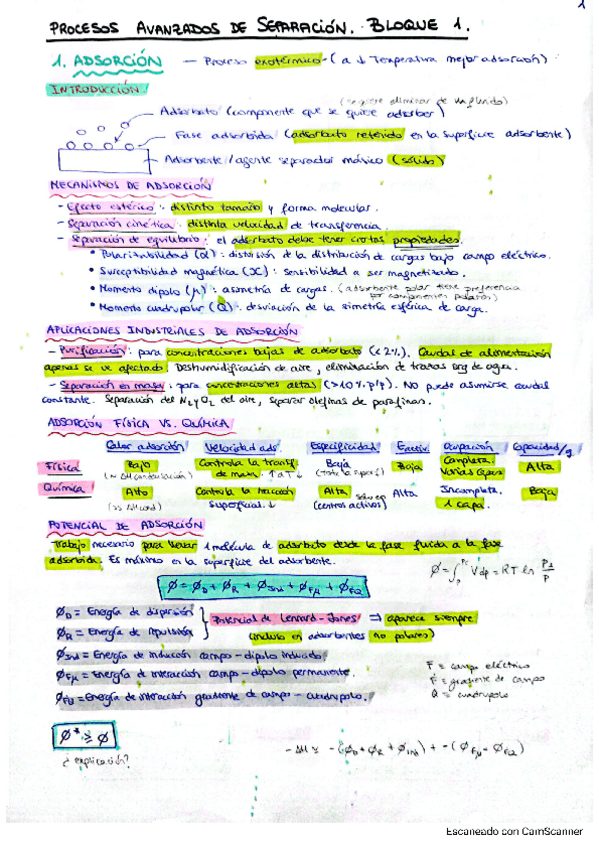 1
PROCESOS AVANZADOS DE SEPARACIÓN. BLOQUE 1.
1. ADSORCIÓN — Proceso exotérmico - (a ↓ Temperatura mejor adsorción)
INTRODUCCIÓN
(requiere eliminar de un fluido)
Adsorbato (componente que se quiere adsorber)
Fase adsorbida (adsorbato retenido en la superficie adsorbente)
Adsorbente/agente separador másico (sólido)
MECANISMOS DE ADSORCIÓN
- Efecto estérico: distinto tamaño y forma molecular.
- Separación cinética: distinta velocidad de transferencia.
- Separación de equilibrio: el adsorbato debe tener ciertas propiedades.
• Polaritabilidad (α): distorsión de la distribución de cargas bajo campo eléctrico.
• Susceptibilidad magnética (X): sensibilidad a ser magnetizado.
• Momento dipolo (μ): asimetría de cargas. (adsorbente polar tiene preferencia por componentes polares)
• Momento cuadrupolar (Q): desviación de la simetría esférica de carga.
APLICACIONES INDUSTRIALES DE ADSORCIÓN
- Purificación: para concentraciones bajas de adsorbato (<2%). Caudal de alimentación
apenas se ve afectado. Deshumidificación de aire, eliminación de trazas org de agua.
- Separación en masa: para concentraciones altas (>10% p/p). No puede asumirse caudal
constante. Separación del N₂ y O₂ del aire, separar olefinas de parafinas.
ADSORCIÓN FÍSICA VS. QUÍMICA
Calor adsorción Velocidad ads. Especificidad Eactiv. Ocupación Capacidad/g
Física Bajo Controla la transf. Baja Baja Completa. Alta
(≈ ΔH condensación) de mat. ↑ a T↓ (toda la superf) Varias capas
Química Alto Controla la reacción Alta Alta Incompleta. Baja
(>> ΔHcond) superficial. ↓ (centros activos) 1 capa.
POTENCIAL DE ADSORCIÓN
Trabajo necesario para llevar 1 molécula de adsorbato desde la fase fluida a la fase
adsorbida. Es máximo en la superficie del adsorbente.
Ø = ∫ V dp = RT ln
Ø = Ø_D + Ø_R + Ø_Ind + Ø_Fμ + Ø_FQ
Ø_D = Energía de dispersión
Potencial de Lennard-Jones ⇒ aparece siempre
Ø_R = Energía de repulsión (incluso en adsorbentes no polares)
Ø_Ind = Energía de inducción campo - dipolo inducido
Ø_Fμ = Energía de interacción campo - dipolo permanente.
Ø_FQ = Energía de interacción gradiente de campo - cuadrupolo.
F = campo eléctrico
Ḟ = gradiente de campo
Q = cuadrupolo
Ø* ≥ Ø
¿explicación?
- ΔH ≃ - (Ø_D + Ø_R + Ø_Ind) + - (Ø_Fμ - Ø_FQ)
Escaneado con CamScanner